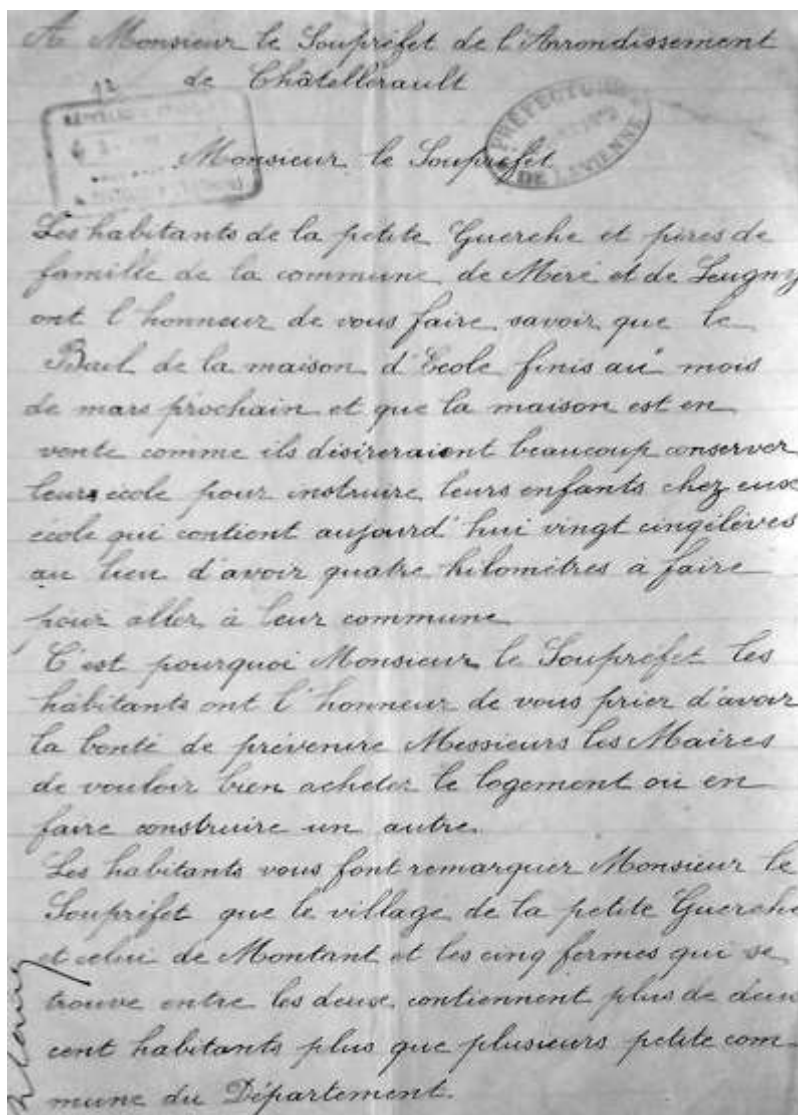 A Monsieur le Soupréfet de l'Arrondissement
12 de Châtellerault
PRÉFECTURE
DE LA VIENNE
Monsieur le Soupréfet
Les habitants de la petite Guerche et pères de
famille de la commune de Meré et de Leugny
ont l'honneur de vous faire savoir que le
Bail de la maison d'Ecole finis au mois
de mars prochain et que la maison est en
vente comme ils désireraient beaucoup conserver
leurs école pour instruire leurs enfants chez eux
école qui contient aujourd'hui vingt cinq élèves
au lieu d'avoir quatre kilomètres à faire
pour aller à leur commune
C'est pourquoi Monsieur le Soupréfet les
habitants ont l'honneur de vous prier d'avoir
la bonté de prévenire Messieurs les Maires
de vouloir bien acheter le logement ou en
faire construire un autre.
Les habitants vous font remarquer Monsieur le
Soupréfet que le village de la petite Guerche
et celui de Montant et les cinq fermes qui se
trouve entre les deux contiennent plus de deux
cent habitants plus que plusieurs petite com-
mune du Département.